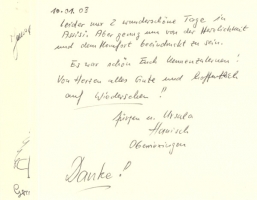 10.01.03
Leider nur 2 wunderschöne Tage in
Assisi. Aber genug um von der Herzlichkeit
und dem Komfort beeindruckt zu sein.
Es war schön Euch kennenzulernen!
Von Herzen alles Gute und hoffentlich
auf Wiedersehen!!
Jürgen u. Ursula
Hanisch
Danke!